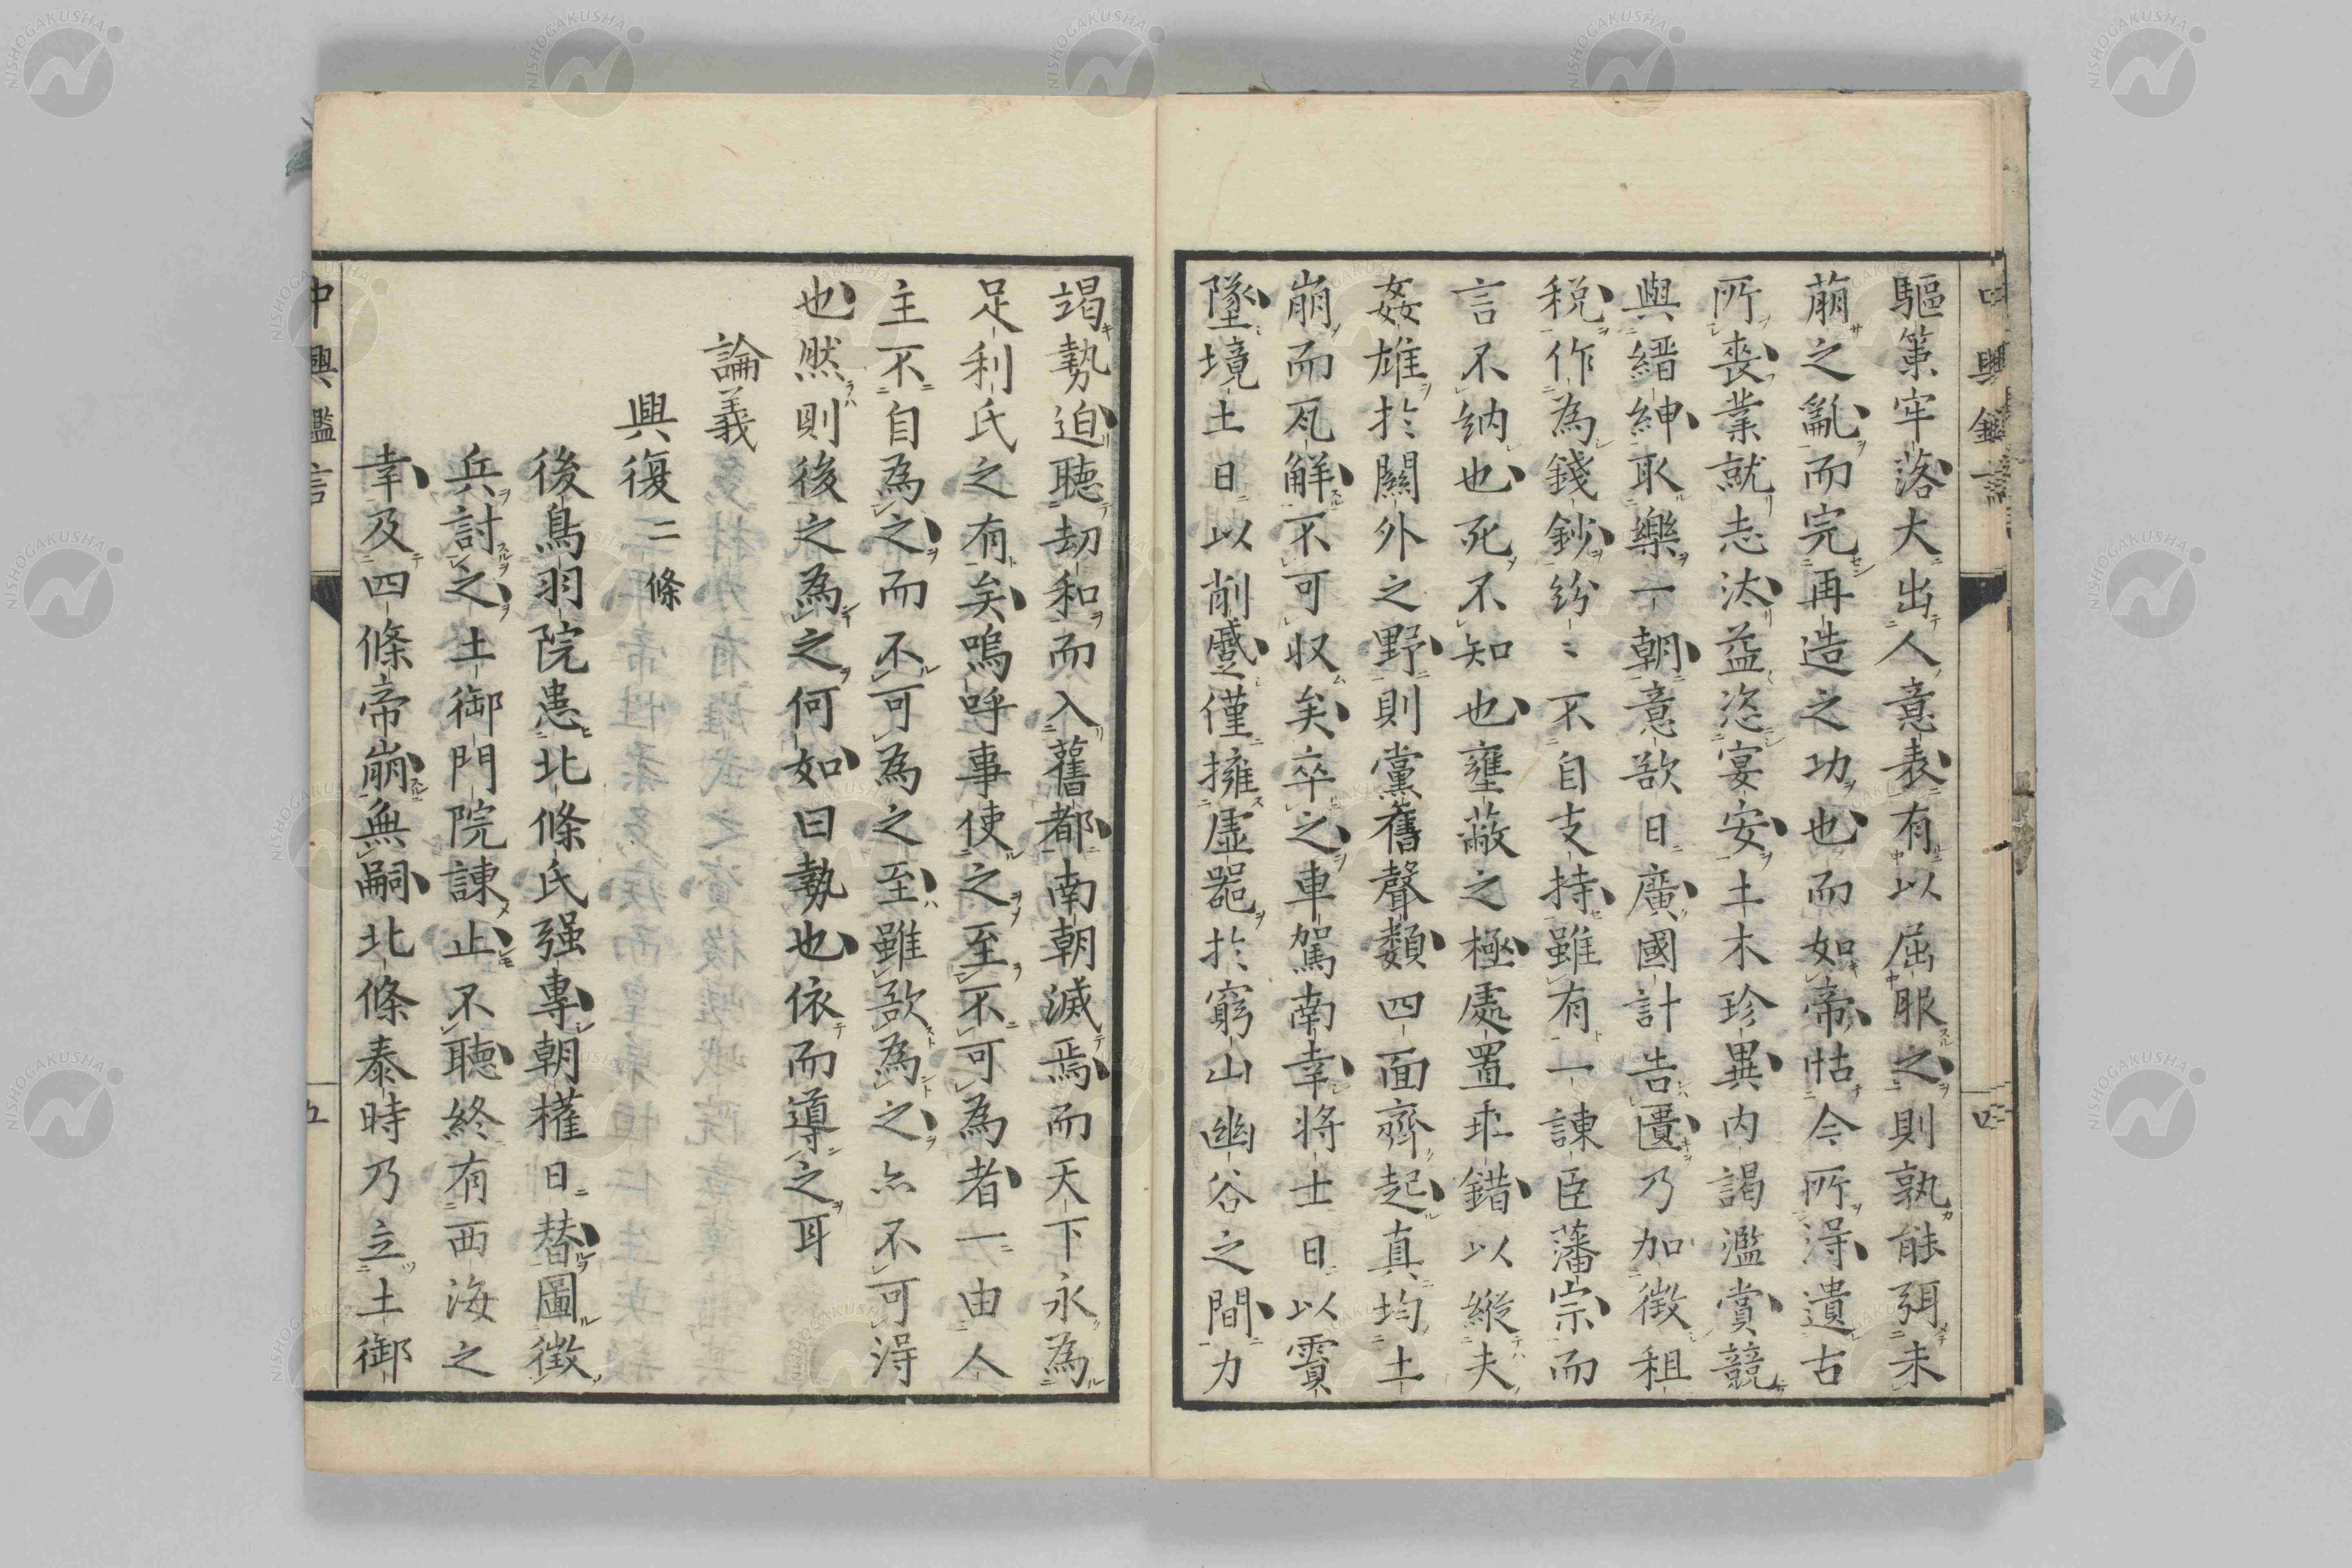 驅策牢落大出人意表有以屈服之則孰能弭未
萠之亂而完再造之功也而如帝怙今所得遺古
所喪業就志汰益恣宴安土木珍異内謁濫賞競
與縉紳取樂一朝意欲日廣國計告匱乃加徴租
税作為錢鈔紛〻不自支持雖有一諫臣藤宗而
言不納也死不知也壅蔽之極處置乖錯以縱夫
姦雄於關外之野則黨舊聲類四面齊起真均土
崩而瓦解不可収矣卒之車駕南幸将士日以霣
墜境土日以削蹙僅擁虚器於窮山幽谷之間力
竭勢迫聴劫和而入舊都南朝滅焉而天下永為
足利氏之有矣嗚呼事使之至不可為者一由人
主不自為之而不可為之至雖欲為之亦不可得
也然則後之為之何如曰勢也依而導之耳
論義
興復二條
後鳥羽院患北條氏强專朝權日替圖徴
兵討之土御門院諫止不聴終有西海之
幸及四條帝崩無嗣北條泰時乃立土御
中興鑑言
五
中興鑑言
四